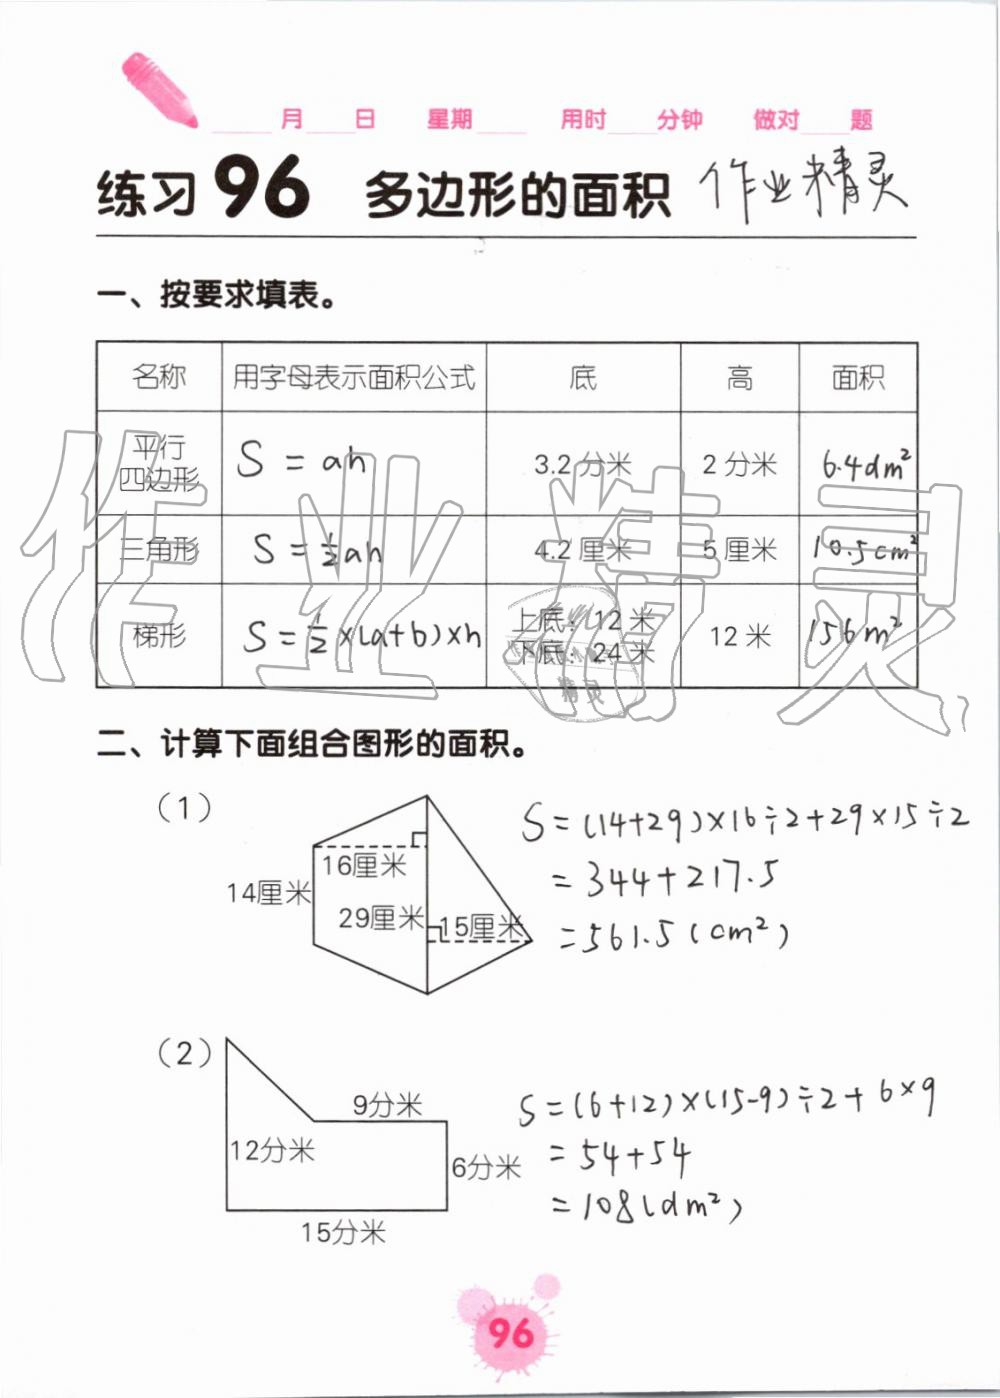 月 日 星期 用时 分钟 做对 题
练习 96 多边形的面积 作业精灵
一、按要求填表。
名称 用字母表示面积公式 底 高 面积
平行四边形 S = ah 3.2 分米 2 分米 6.4dm²
三角形 S = ½ah 4.2 厘米 5 厘米 10.5cm²
梯形 S = ½×(a+b)×h 上底：12 米 下底：24 米 12 米 156m²
作业精灵
二、计算下面组合图形的面积。
(1)
16厘米
14厘米
29厘米
15厘米
S=(14+29)×16÷2+29×15÷2
=344+217.5
=561.5(cm²)
(2)
9分米
12分米
6分米
15分米
S=(6+12)×(15-9)÷2+6×9
=54+54
=108(dm²)
96